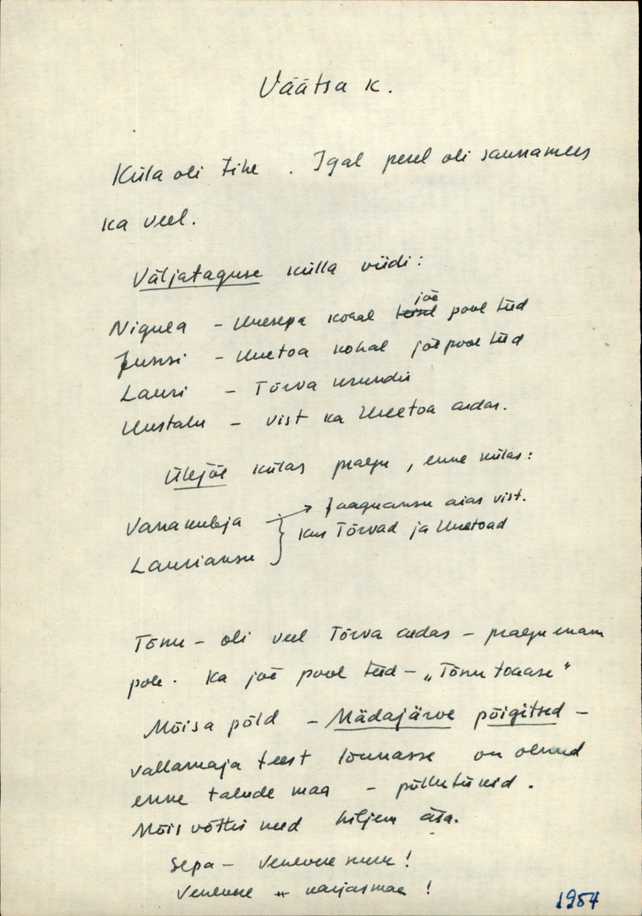 Väätsa k.
Küla oli tihe. Igal perel oli saunamees
ka veel.
Väljataguse külla viidi:
Nigula – Uuesepa kohal jõe pool teed
Jussi – Uuetoa kohal jõe pool teed
Lauri – Tõrva
Uustalu – vist ka Uuetoa aidas.
Ülejõe külas praegu, enne külas:
Vanakubja → Jaaguansu aias vist.
Lauriansu } kus Tõrvad ja Uuetoad
Tõnu – oli veel Tõrva aidas – praegu enam
pole. Ka jõe pool teed – „Tõnu toaase"
Mõisa põld – Mädajärve põigitsed –
vallamaja teest lõunasse on olnud
enne talude maa – põllutükid.
Mõis võttis need hiljem ära.
Sepa – Venevere !
Venevere – karjasmaa !
1954